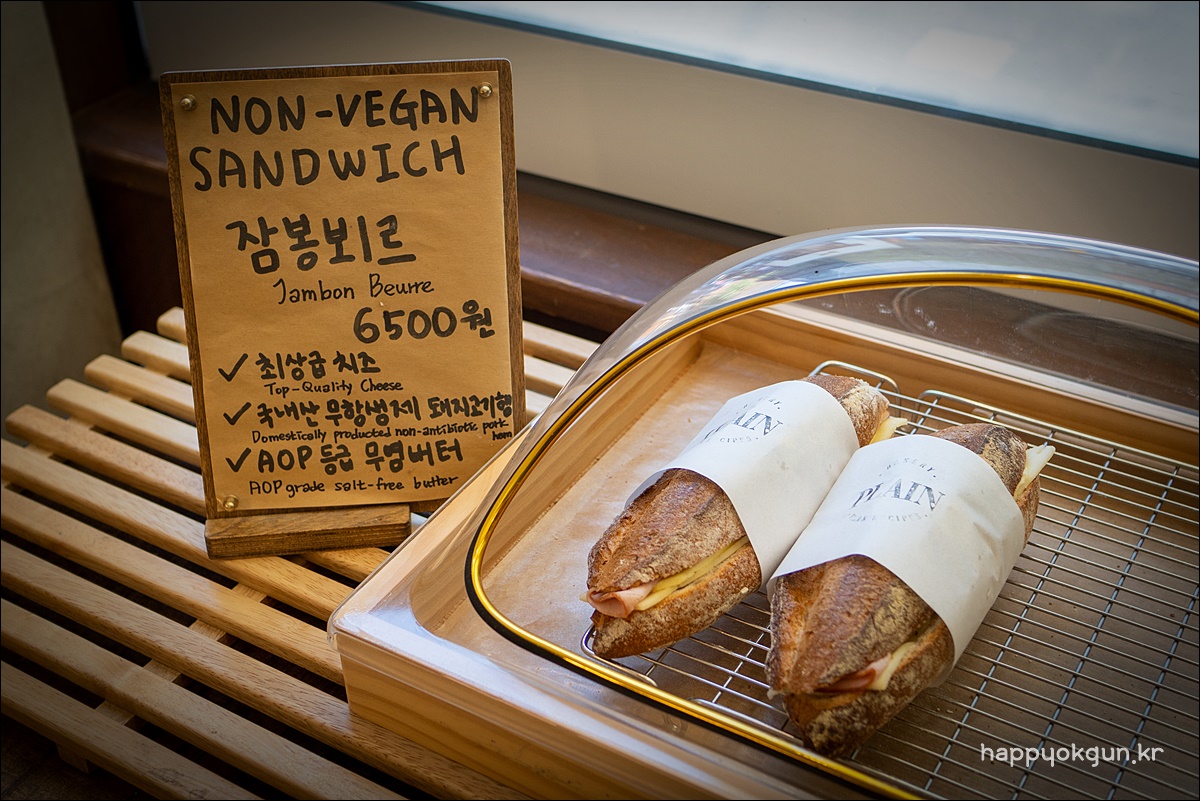 NON-VEGAN
SANDWICH
잠봉뵈르
Jambon Beurre
6500원
✓ 최상급 치즈
Top-Quality Cheese
✓ 국내산 무항생제 돼지고기햄
Domestically producted non-antibiotic pork
ham
✓ AOP 등급 무염버터
AOP grade salt-free butter
PLAIN
BAKERY.
PLAIN
happyokgun.kr